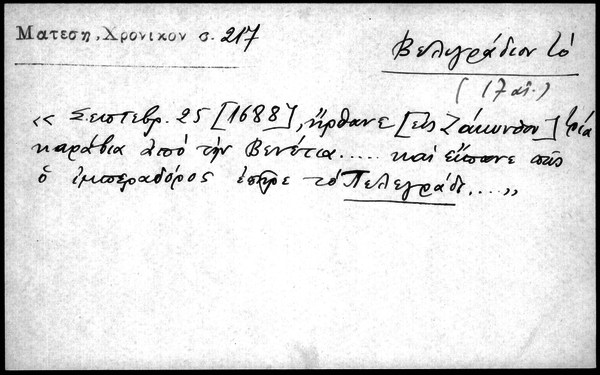 Ματεση, Χρονικον σ. 217
Βελιγράδιον τό
(17 αἰ.)
« Σεπτεβρ. 25 [1688], ἤρθανε [εἰς Ζάκυνθον] τρία
καράβια ἀπό τήν Βενέτια..... καί εἴπανε πῶς
ὁ ἰμπεραδόρος ἐπῆρε τό Πελεγράδι....»